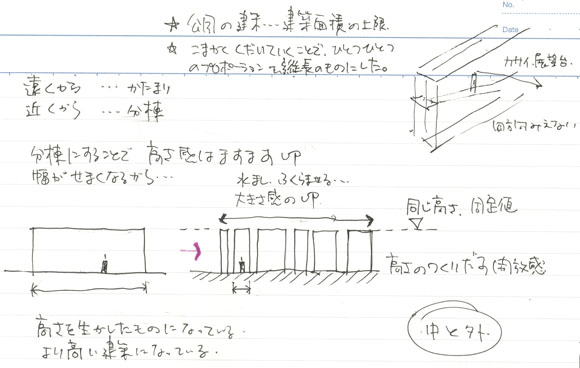 No.
Date
☆ 公園の建築…建築面積の上限
☆ こまかくくだいていくことで、ひとつひとつ
のプロポーションを縦長のものにした。
カサイ展望台
遠くから …かたまり
近くから …分棟
分棟にすることで 高さ感はますますUP
幅がせまくなるから…
水まし、ふくらませる…
大きさ感のUP
同じ高さ、固定値
高さのつくりだす開放感
高さを生かしたものになっている
より高い建築になっている。
中と外